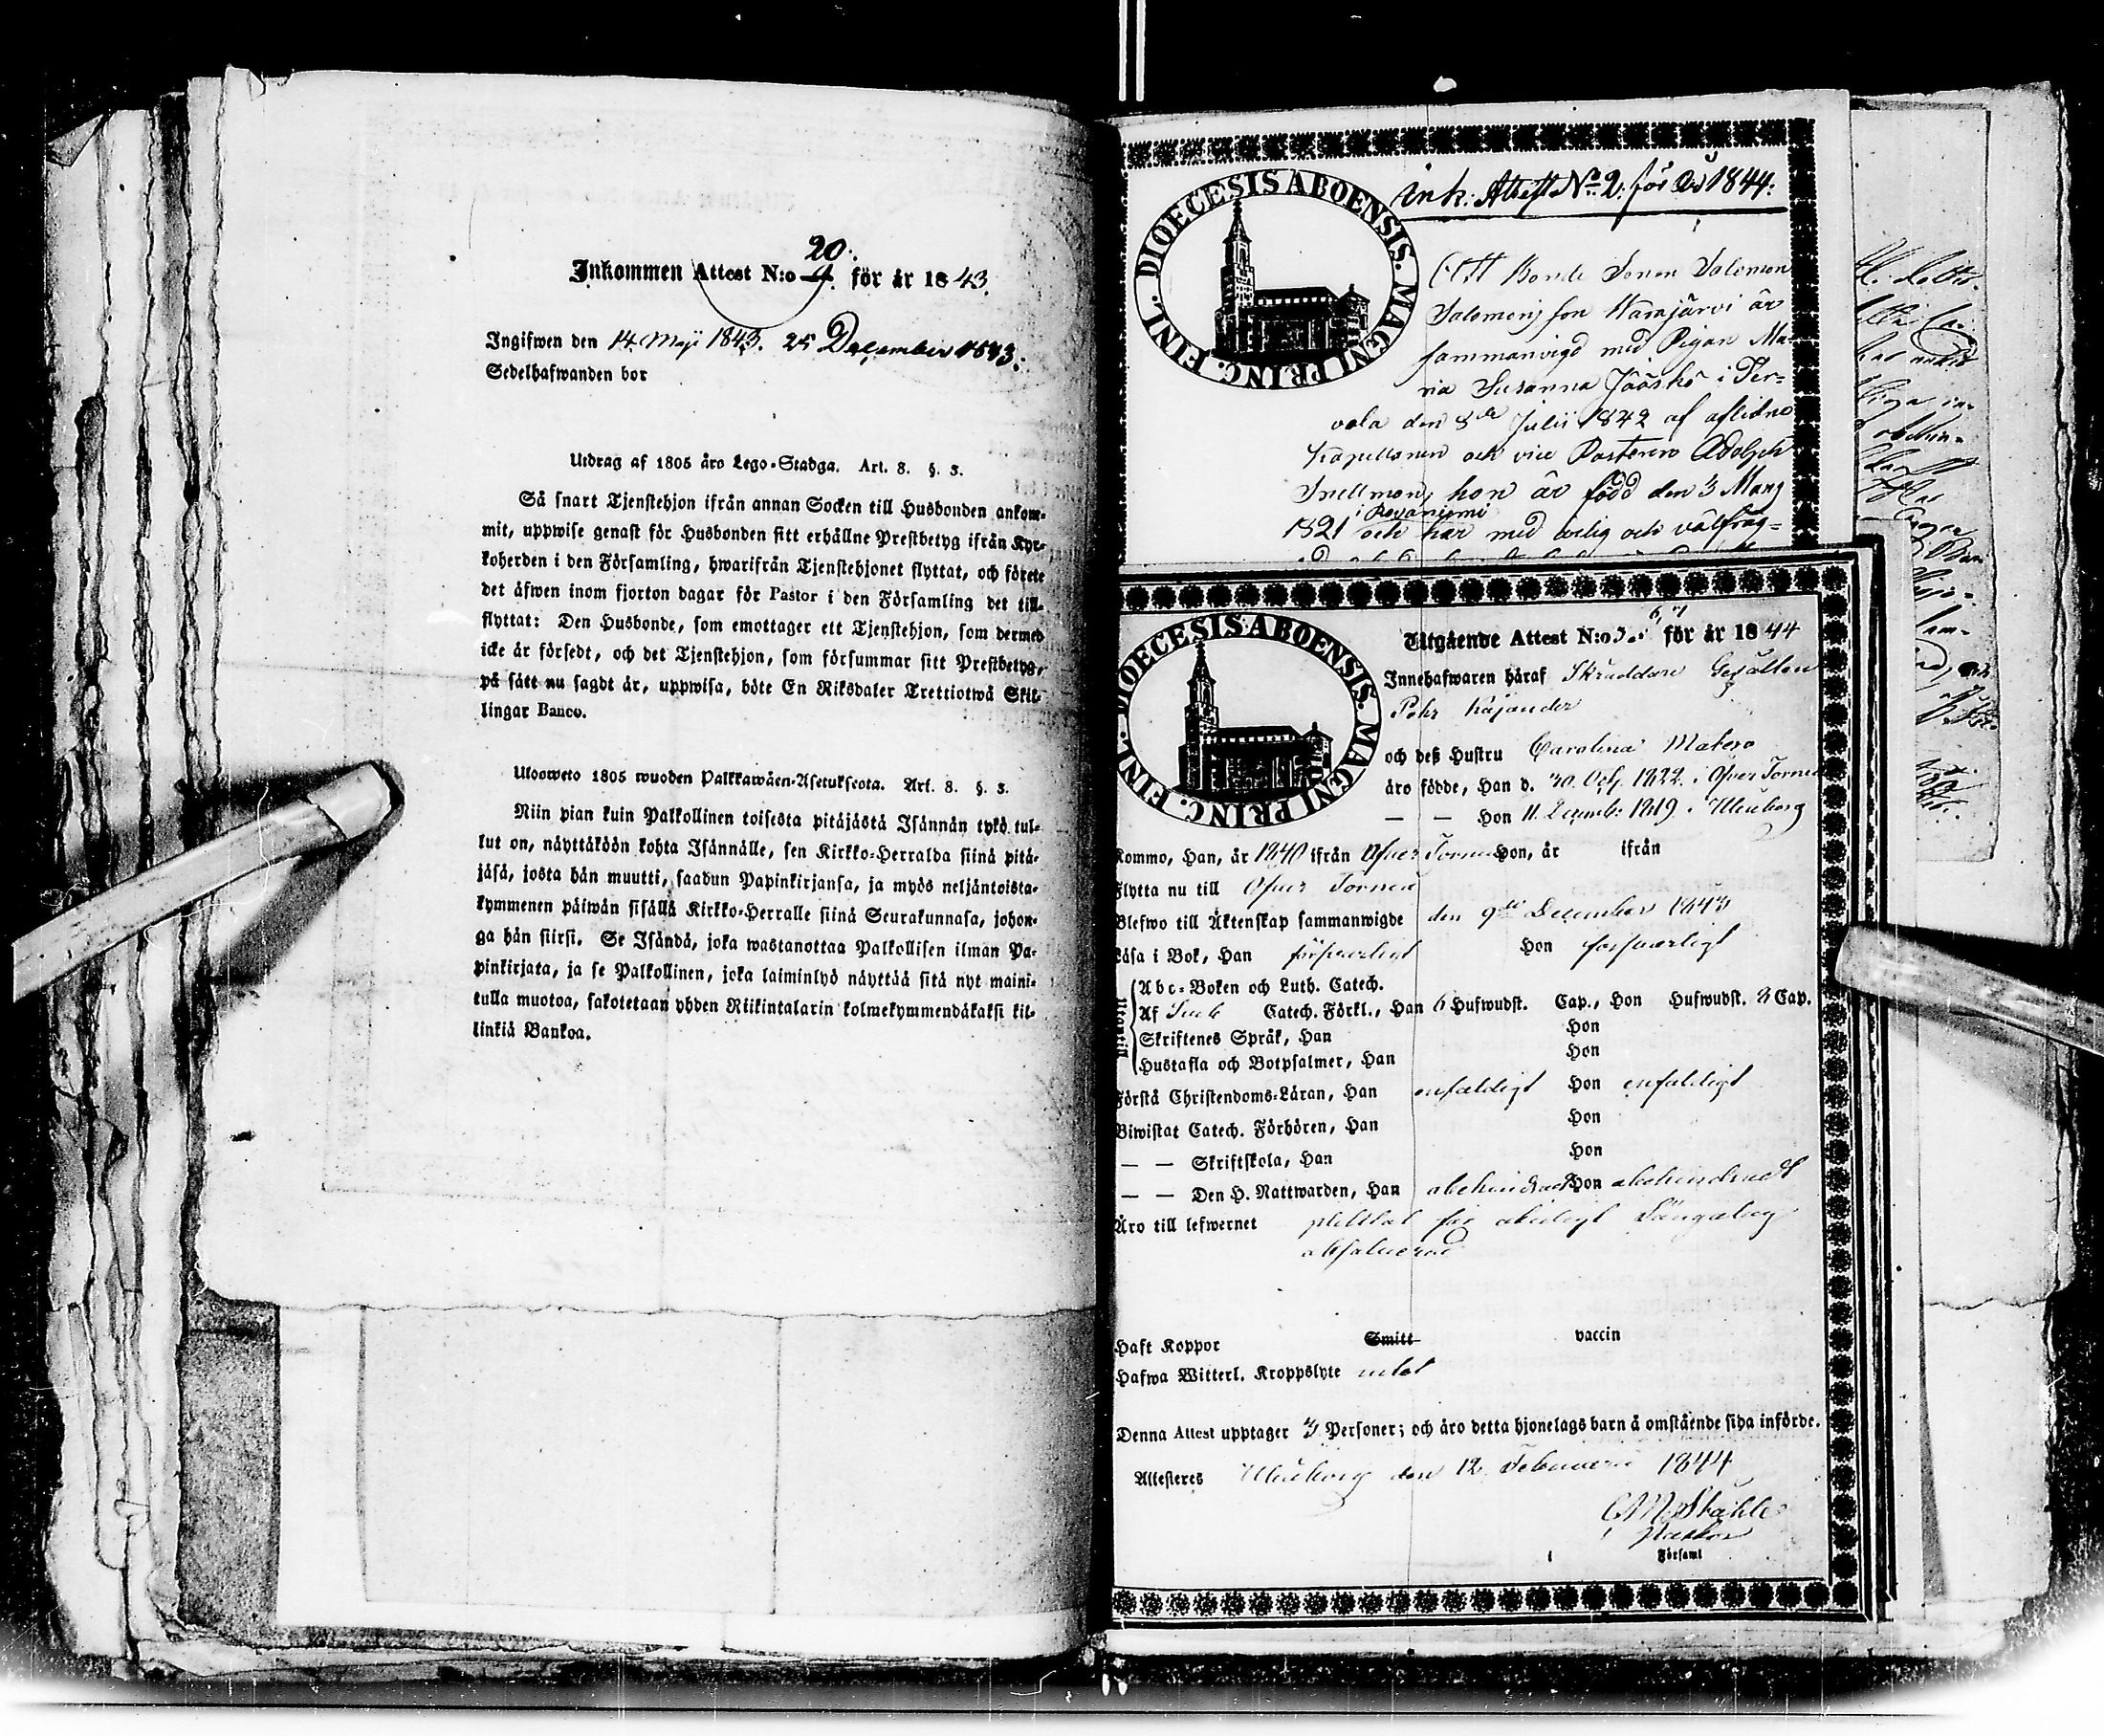 20.
Inkommen Attest N:o 9. för år 1843.
Ingifwen den 14 Maji 1843. 25 December 1843.
Sedelhafwanden bor
Utdrag af 1805 åro Lego-Stadga. Art. 8. §. 3.
Så snart Tjenstehjon ifrån annan Socken till Husbonden ankom-
mit, uppwise genast för Husbonden sitt erhållne Prestbetyg ifrån Kyr-
koherden i den Församling, hwarifrån Tjenstehjonet flyttat, och förete
det äfwen inom fjorton dagar för Pastor i den Församling det till-
flyttat: Den Husbonde, som emottager ett Tjenstehjon, som dermed
icke är försedt, och det Tjenstehjon, som försummar sitt Prestbetyg,
på sätt nu sagdt är, uppwisa, böte En Riksdaler Trettiotwå Skil-
lingar Banco.
Ulosweto 1805 wuoden Palkkawäen-Asetuksesta. Art. 8. §. 3.
Niin pian kuin Palkollinen toisesta pitäjästä Isännän tykö tul-
lut on, näyttäköön kohta Isännälle, sen Kirkko-Herralda siinä pitä-
jäsä, josta hän muutti, saadun Papinkirjansa, ja myös neljäntoista-
kymmenen päiwän sisällä Kirkko-Herralle siinä Seurakunnasa, johon-
ga hän siirsi. Se Isändä, joka wastanottaa Palkollisen ilman Pa-
pinkirjata, ja se Palkollinen, joka laiminlyö näyttää sitä nyt maini-
tulla muotoa, sakotetaan yhden Riikintalarin kolmekymmendäkaksi kil-
linkiä Bankoa.
DIOECESIS ABOENSIS. MAGNI PRINC. FINL.
Ink: Attest No 2. för år 1844.
Att Bonde Sonen Salomon
Salomonsson Karajärvi är
sammanvigd med Pigan Ma-
ria Susanna Jääskö i Ter-
vola den 8de Julii 1842 af aflidne
Kapellanen och vice Pastoren Adolph
Snellman, hon är född den 3 Mars
1821 i Rovaniemi och har med ärlig och välfräg-
DIOECESIS ABOENSIS. MAGNI PRINC. FINL.
Utgående Attest N:o för år 1844
Innehafwaren häraf Skräddare Gesällen
Pehr Kajander
och deß Hustru Carolina Matero
äro födde, Han d. 30 Octb. 1822 i Öfver Torneå
— — Hon 11. Decemb: 1819 i Uleåborg
Kommo, Han, år 1840 ifrån Öfver Torneå Hon, år ifrån
Flytta nu till Öfver Torneå
Blefwo till Äktenskap sammanwigde den 9de December 1843
Läsa i Bok, Han försvarligt Hon försvarligt
Utantill
Abc-Boken och Luth. Catech.
Af Catech. Förkl., Han 6 Hufwudst. Cap., Hon Hufwudst. 3 Cap.
Skriftenes Språk, Han Hon
Hustafla och Botpsalmer, Han Hon
Förstå Christendoms-Läran, Han enfaldigt Hon enfaldigt
Biwistat Catech. Förhören, Han Hon
— — Skriftskola, Han Hon
— — Den H. Nattwarden, Han obehindradt Hon obehindradt
Äro till lefwernet
Haft Koppor Smitt vaccin
Hafwa Witterl. Kroppslyte intet
Denna Attest upptager 3 Personer; och äro detta hjonelags barn å omstående sida införde.
Attesteres Uleåborg den 12 Februarii 1844
C M Ståhle
Pastor
i Församl